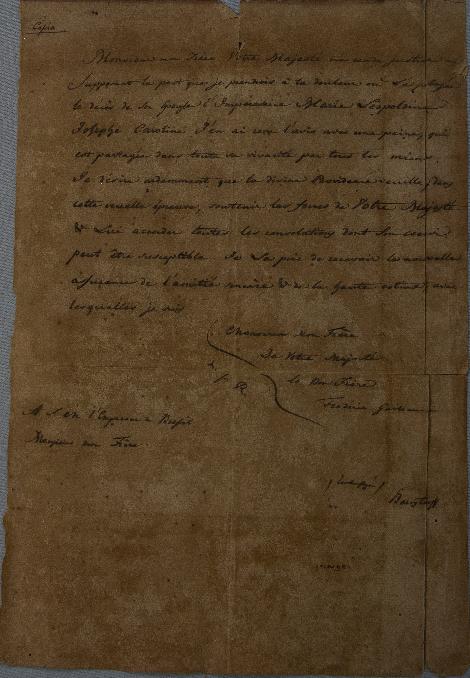 Copia
Monsieur mon Frère Votre Majesté me rende justice en
supposant la part que je prendrois à la douleur où La plonge
le décès de Son épouse l'Impératrice Marie Léopoldine
Josephe Caroline J'en ai reçu l'avis avec une peine, qui
est partagée dans toute sa vivacité par tous les miens.
Je désire ardemment que la divine Providence veuille dans
cette cruelle épreuve, soutenir les forces de Votre Majesté
& Lui accorder toutes les consolations dont Son coeur
peut être susceptible. Je La prie de recevoir la nouvelle
assurance de l'amitié sincère & de la haute estime, avec
lesquelles je suis
Monsieur mon Frère
De Votre Majesté
le bon Frère
Frédéric Guillaume
A S. M. l'Empereur du Brésil
Monsieur mon Frère.
Bernstorff